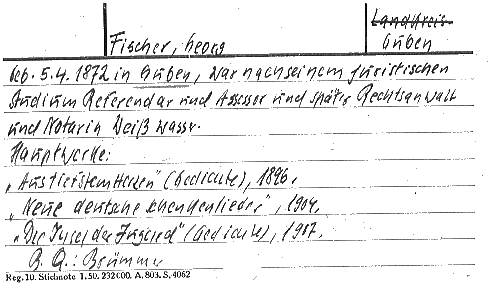 Fischer, Georg
Landkreis
Guben
Geb. 5.4.1872 in Guben, war nach seinem juristischen
Studium Referendar und Assessor und später Rechtsanwalt
und Notar in Weißwasser.
Hauptwerke:
„Aus tiefstem Herzen" (Gedichte), 1896.
„Neue deutsche Schenkenlieder", 1904.
„Die Insel der Jugend" (Gedichte), 1907.
B. Q.: Brümmer
Reg. 10. Stichnote 1. 50. 232000. A. 803. S. 4062